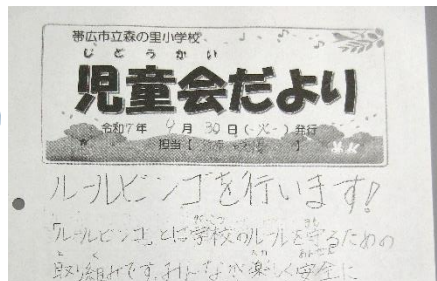 帯広市立森の里小学校
じどうかい
児童会だより
令和7年 9月 30日(火)発行
担当【 】
ルールビンゴを行います!
がっこう まも
「ルールビンゴ」とは学校のルールを守るための
と く たの あんぜん
取り組みです。みんなが楽しく安全に